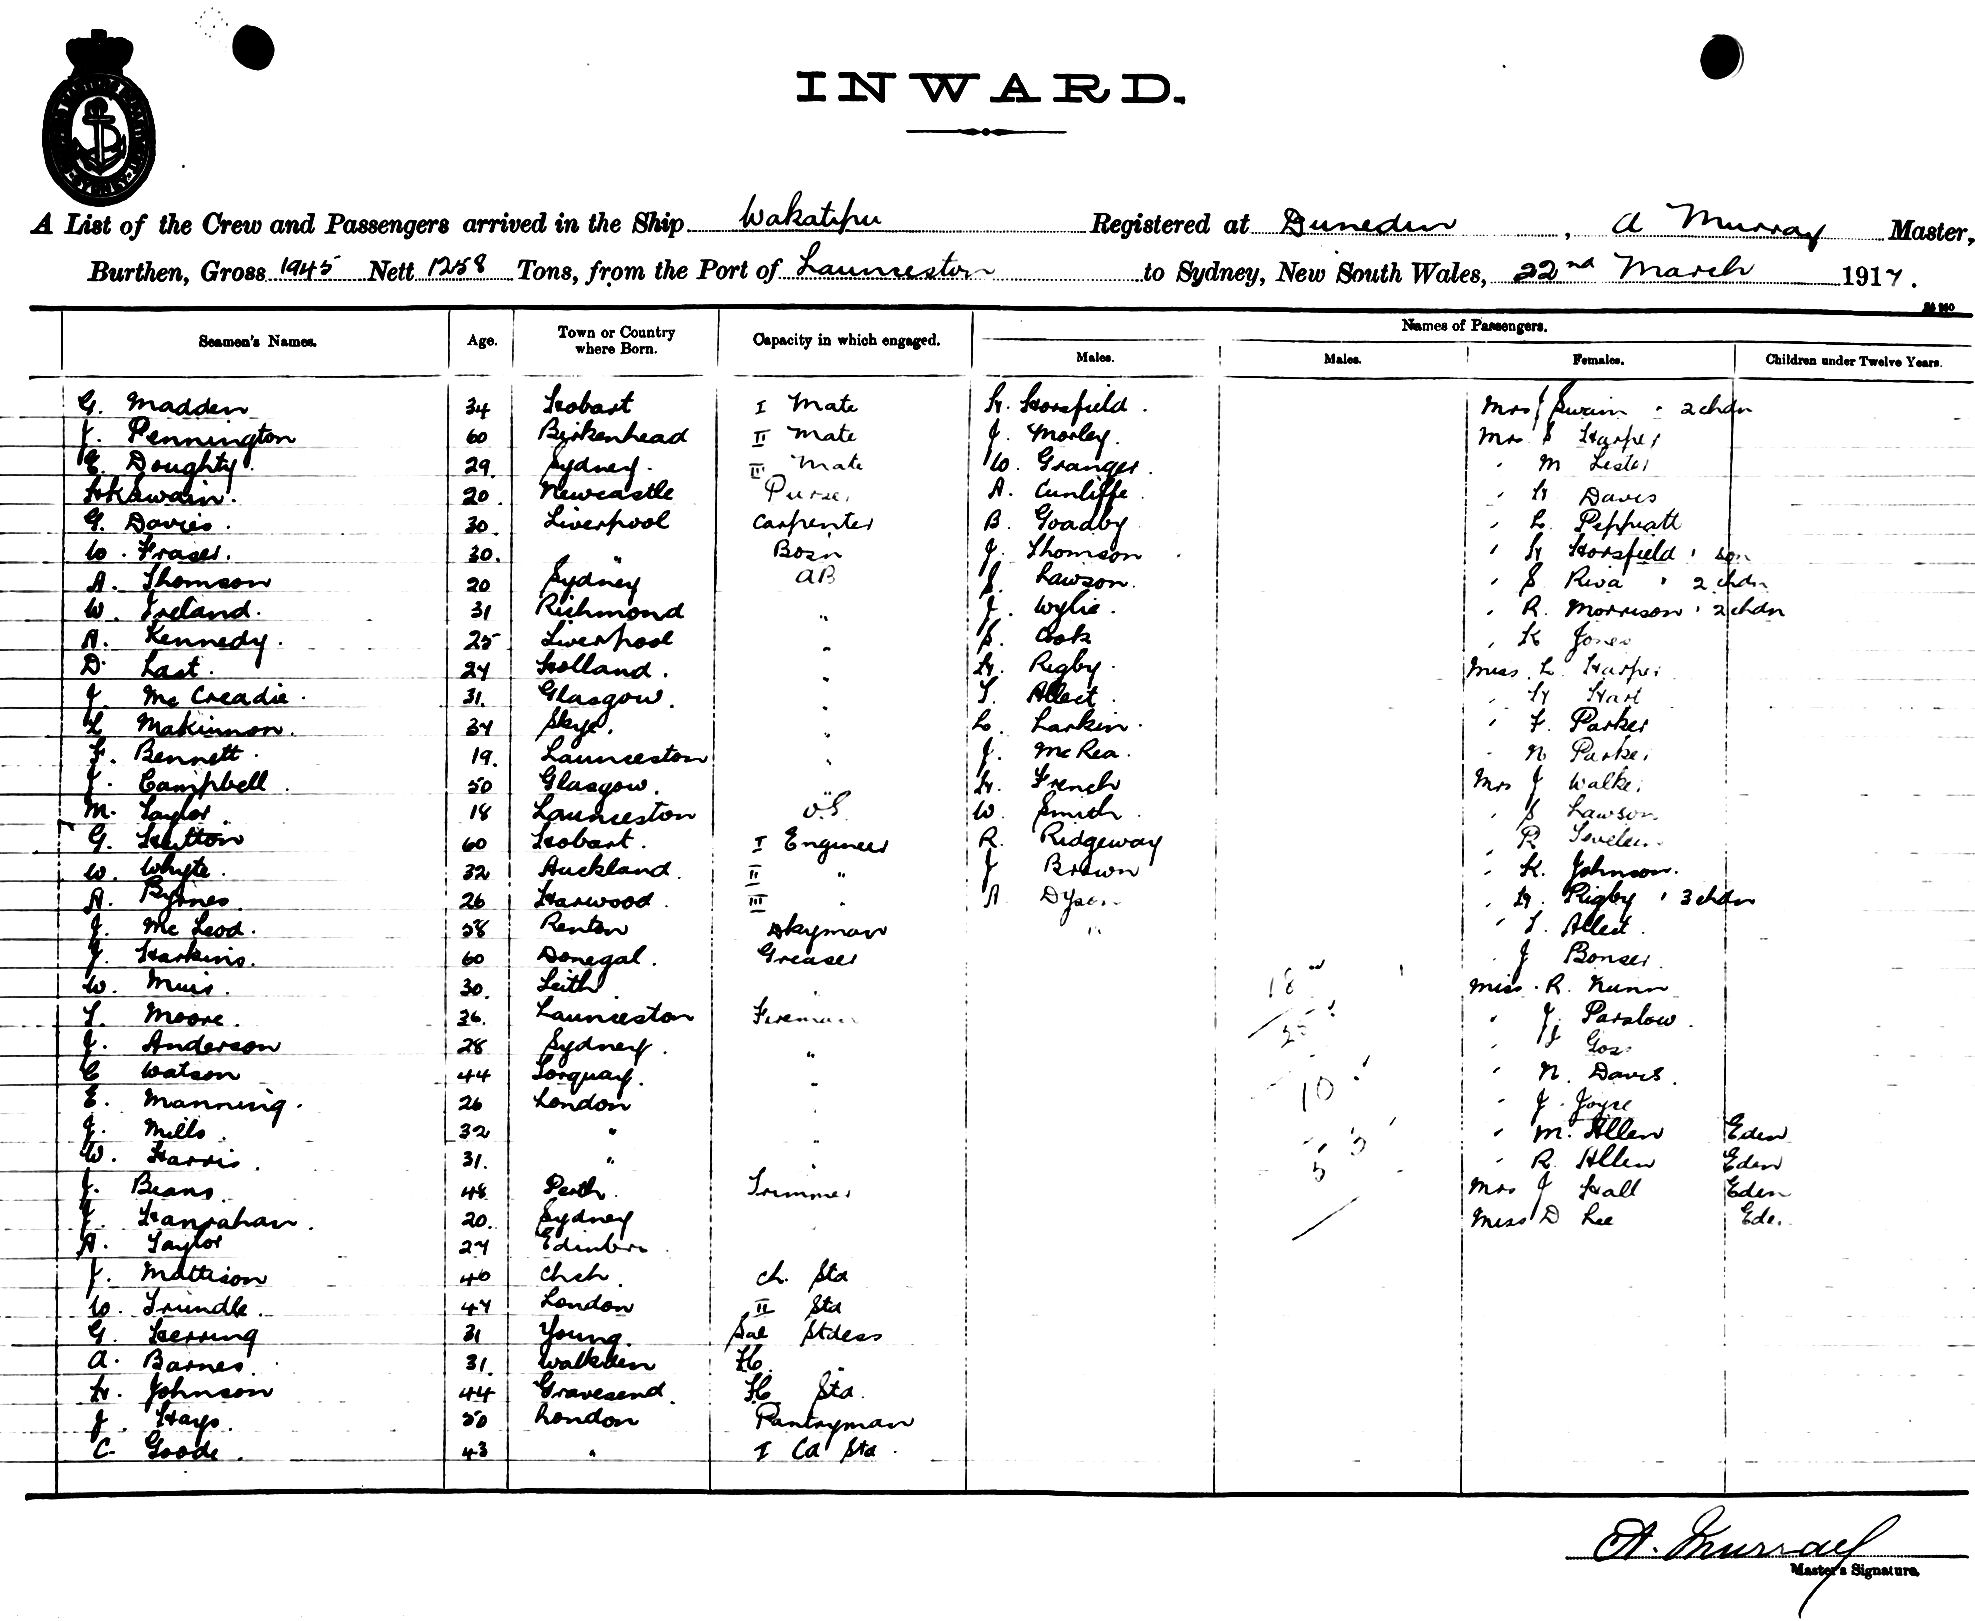 INWARD.
A List of the Crew and Passengers arrived in the Ship Wakatipu Registered at Dunedin, A Murray Master,
Burthen, Gross 1945 Nett 1258 Tons, from the Port of Launceston to Sydney, New South Wales, 22nd March 1917.
Names of Passengers.
Seamen's Names. Age. Town or Country where Born. Capacity in which engaged. Males. Males. Females. Children under Twelve Years.
G. Madden 34 Hobart I Mate H. Horsfield. Mrs J Swain . 2 chdn
J. Pennington 60 Birkenhead II Mate J. Morley. Mrs S Harper
E. Doughty. 29. Sydney. III Mate W. Granger. " M Lester
H K Swain. 20. Newcastle Purser A. Cunliffe. " H Davis
G. Davies. 30. Liverpool Carpenter B. Goadby. " L. Peppiatt
W. Fraser. 30. " Bosn J. Thomson. " H Horsfield . son
A. Thomson 20 Sydney AB S. Lawson. " S Riva . 2 chdn
W. Ireland. 31 Richmond " J. Wylie. " R. Morrison . 2 chdn
A. Kennedy. 25 Liverpool " S. Cook " K Jones
D. Last. 24 Holland. " H. Rigby. Miss L. Harper
J. McCreadie. 31. Glasgow. " T. Allect. " H Hart
L Makinnon. 34 Skye. " L. Larkin. " F. Parker
F. Bennett. 19. Launceston " J. McRea. " N Parker
J. Campbell. 50 Glasgow. " H. French Mrs J Walker
M. Taylor. 18 Launceston O.S. W. Smith. " S Lawson
G. Hutton 60 Hobart. I Engineer R. Ridgeway " R
W. Whyte. 32 Auckland. II " J Brown " K. Johnson.
A. Byrnes. 26 Harwood. III " A Dyson " H. Rigby . 3 chdn
J. McLeod. 58 Renton Dkyman " " T. Allect.
J. Harkins. 60 Donegal. Greaser " J Bonser.
W. Muir. 30. Leith. " 18 Miss R. Nunn
T. Moore. 36. Launceston Fireman 25 " J. Parslow.
J. Anderson 28 Sydney. " " J Gos
C Watson 44 Torquay. " 10 " N. Davis.
E. Manning. 26 London " " J. Joyce
J. Mills. 32 " " 5 3 " M. Allen Eden
W. Harris. 31. " " 5 " R. Allen Eden
J. Beans. 48 Perth. Trimmer Mrs J Hall Eden
J. Hanrahan. 20. Sydney Miss D Lee Eden
A. Taylor 27 Edinbro
J. Mattison 40 Chch. Ch. Std
W. Trundle. 47 London II Std
G. Herring 31 Young. Sal Stdess
A. Barnes. 31. Walkden FC "
H. Johnson 44 Gravesend. FC Std.
J. Hays. 50 London Pantryman
C. Goode. 43 " I Ca Std.
A. Murray
Master's Signature.